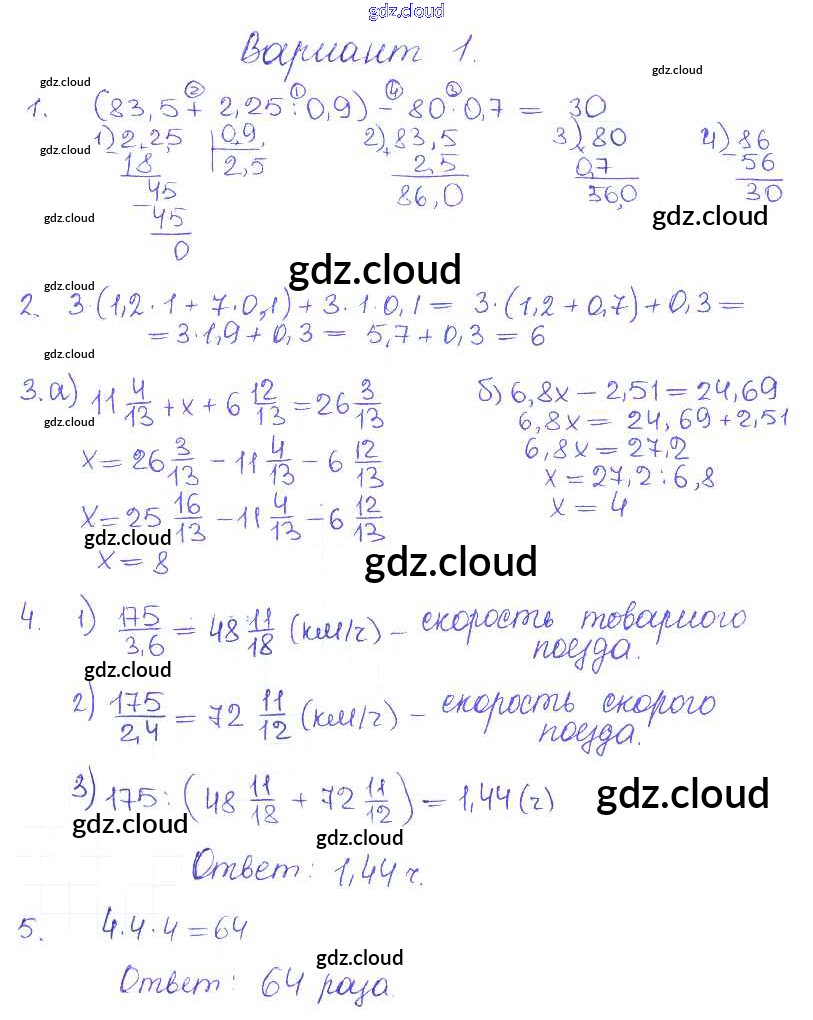 gdz.cloud
Вариант 1.
gdz.cloud gdz.cloud
② ① ④ ③
1. (83,5 + 2,25 : 0,9) - 80 · 0,7 = 30
1) 2,25 | 0,9 2) 83,5 3) 80 4) 86
gdz.cloud - 18 2,5 + 2,5 × 0,7 - 56
45 86,0 56,0 30
gdz.cloud - 45 gdz.cloud
0
gdz.cloud
gdz.cloud
2. 3·(1,2·1 + 7·0,1) + 3·1·0,1 = 3·(1,2 + 0,7) + 0,3 =
= 3·1,9 + 0,3 = 5,7 + 0,3 = 6
gdz.cloud
3. а) 11 4/13 + x + 6 12/13 = 26 3/13 б) 6,8x - 2,51 = 24,69
gdz.cloud 6,8x = 24,69 + 2,51
x = 26 3/13 - 11 4/13 - 6 12/13 6,8x = 27,2
x = 27,2 : 6,8
x = 25 16/13 - 11 4/13 - 6 12/13 x = 4
gdz.cloud
x = 8 gdz.cloud
4. 1) 175/3,6 = 48 11/18 (км/ч) - скорость товарного
поезда.
gdz.cloud
2) 175/2,4 = 72 11/12 (км/ч) - скорость скорого
поезда.
3) 175 : (48 11/18 + 72 11/12) = 1,44 (ч) gdz.cloud
gdz.cloud gdz.cloud
Ответ: 1,44 ч.
5. 4·4·4 = 64
gdz.cloud
Ответ: 64 раза.